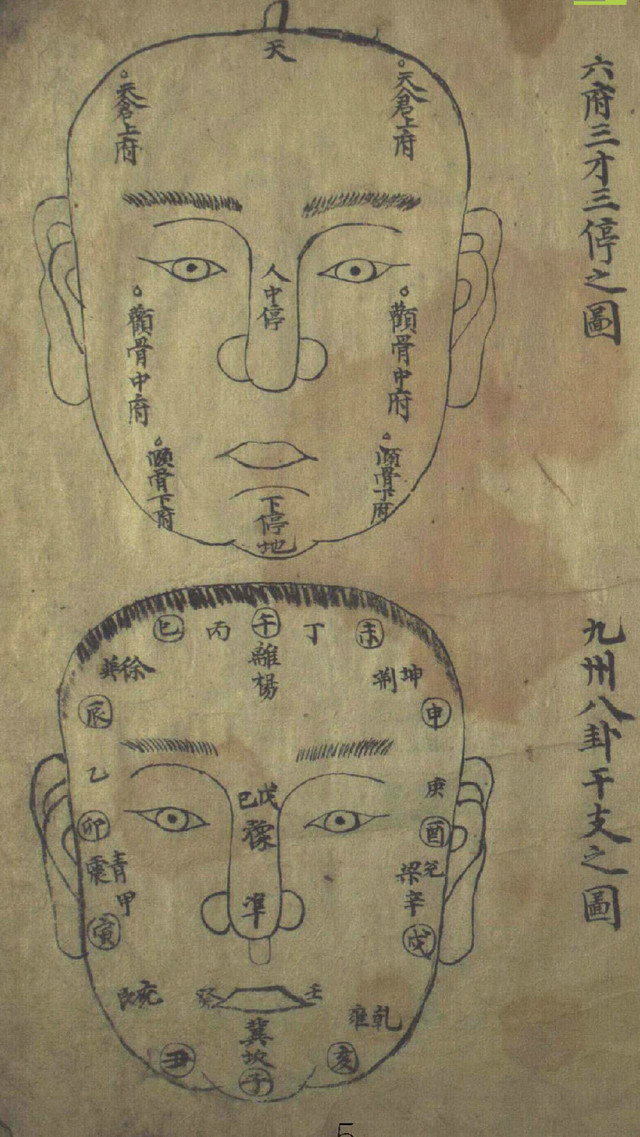 六府三才三停之圖
天
天倉上府
天倉上府
人中停
顴骨中府
顴骨中府
頤骨下府
頤骨下府
下停地
九州八卦干支之圖
巳
丙
午
丁
未
離
揚
徐
坤
荆
辰
申
乙
庚
戊
己
豫
卯
酉
震
青
兌
梁
甲
辛
準
寅
戌
艮
兖
癸
壬
乾
雍
冀
坎
丑
子
亥
5